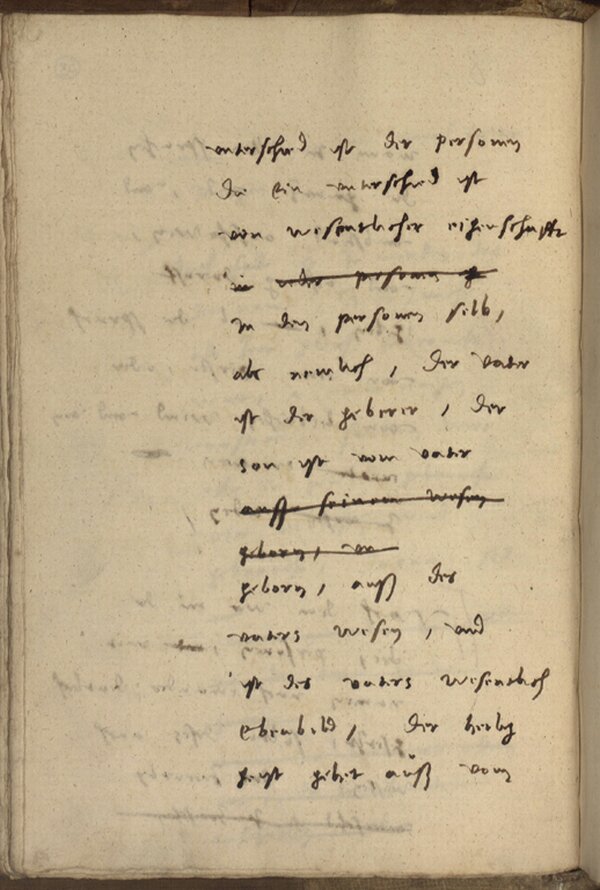 unterschied ist der personen
Die ein unterschied ist
von wesentlicher eigenschafft
in oder personen
In den personen selb,
als nemlich, Der Vater
ist der geberer, der
son ist vom vater
auss seinem wesen
geborn, vn
geborn, auß des
vaters Wesen, und
ist des vaters Wesentlich
Ebenbild, der heilig
geist gehet auß vom